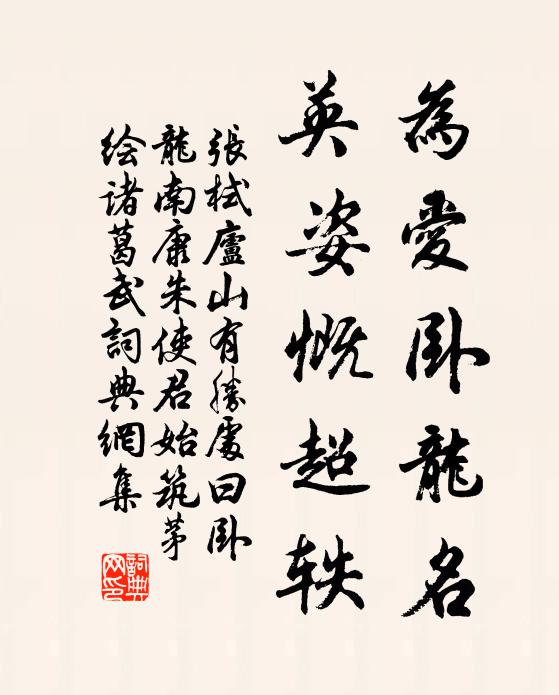 為愛卧龍名
英姿慨超轶
張栻廬山有勝處曰卧
龍南康朱使君始筑茅
绘诸葛武詞典網集
詞典
网印